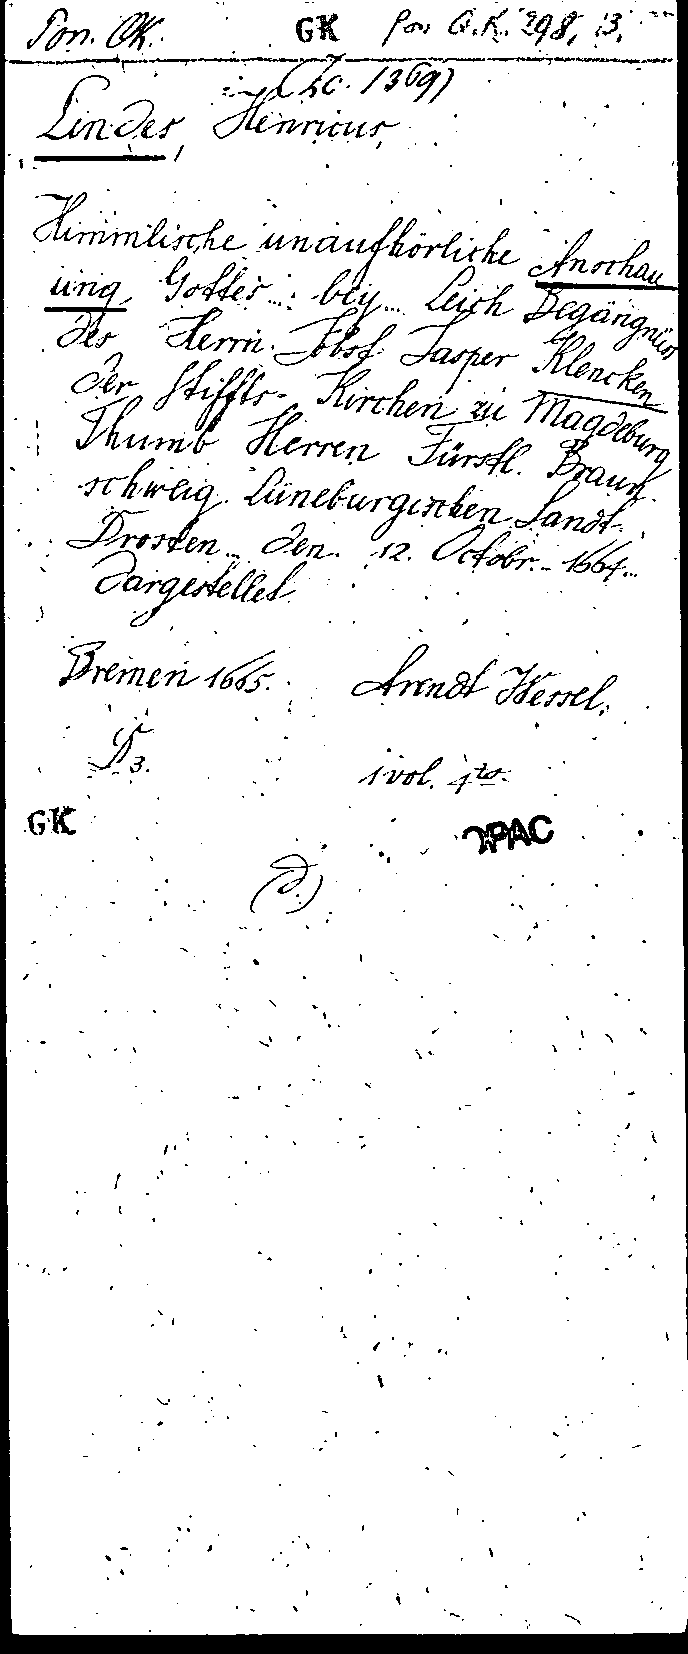 Pon. QK. GK Pon Q.K. 298, 13.
(Zc. 1369)
Lindes, Henricus,
Himmlische unaufhörliche Anschau
ung Gottes... bey... Leich Begängnüss
des Herrn Jobst Jasper Klencken
der Stiffts-Kirchen zu Magdeburg
Thumb Herren Fürstl. Braun
schweig. Lüneburgischen Landt-
Drosten... den 12. Octobr... 1664...
dargestellet
Bremen 1665. Arendt Wessel.
3. 1 vol. 4to.
GK OPAC
(D.)